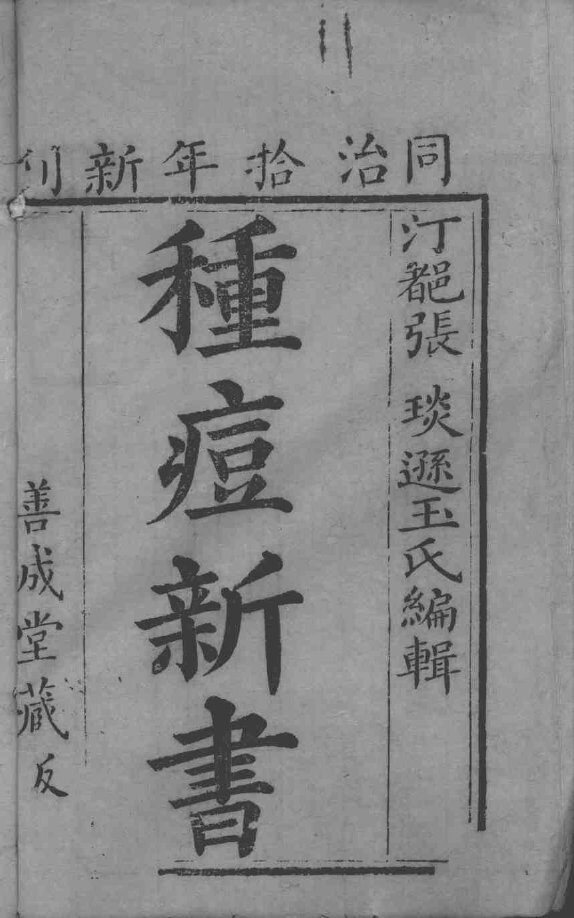 同治拾年新刊
汀都張 琰遜玉氏編輯
種痘新書
善成堂藏反